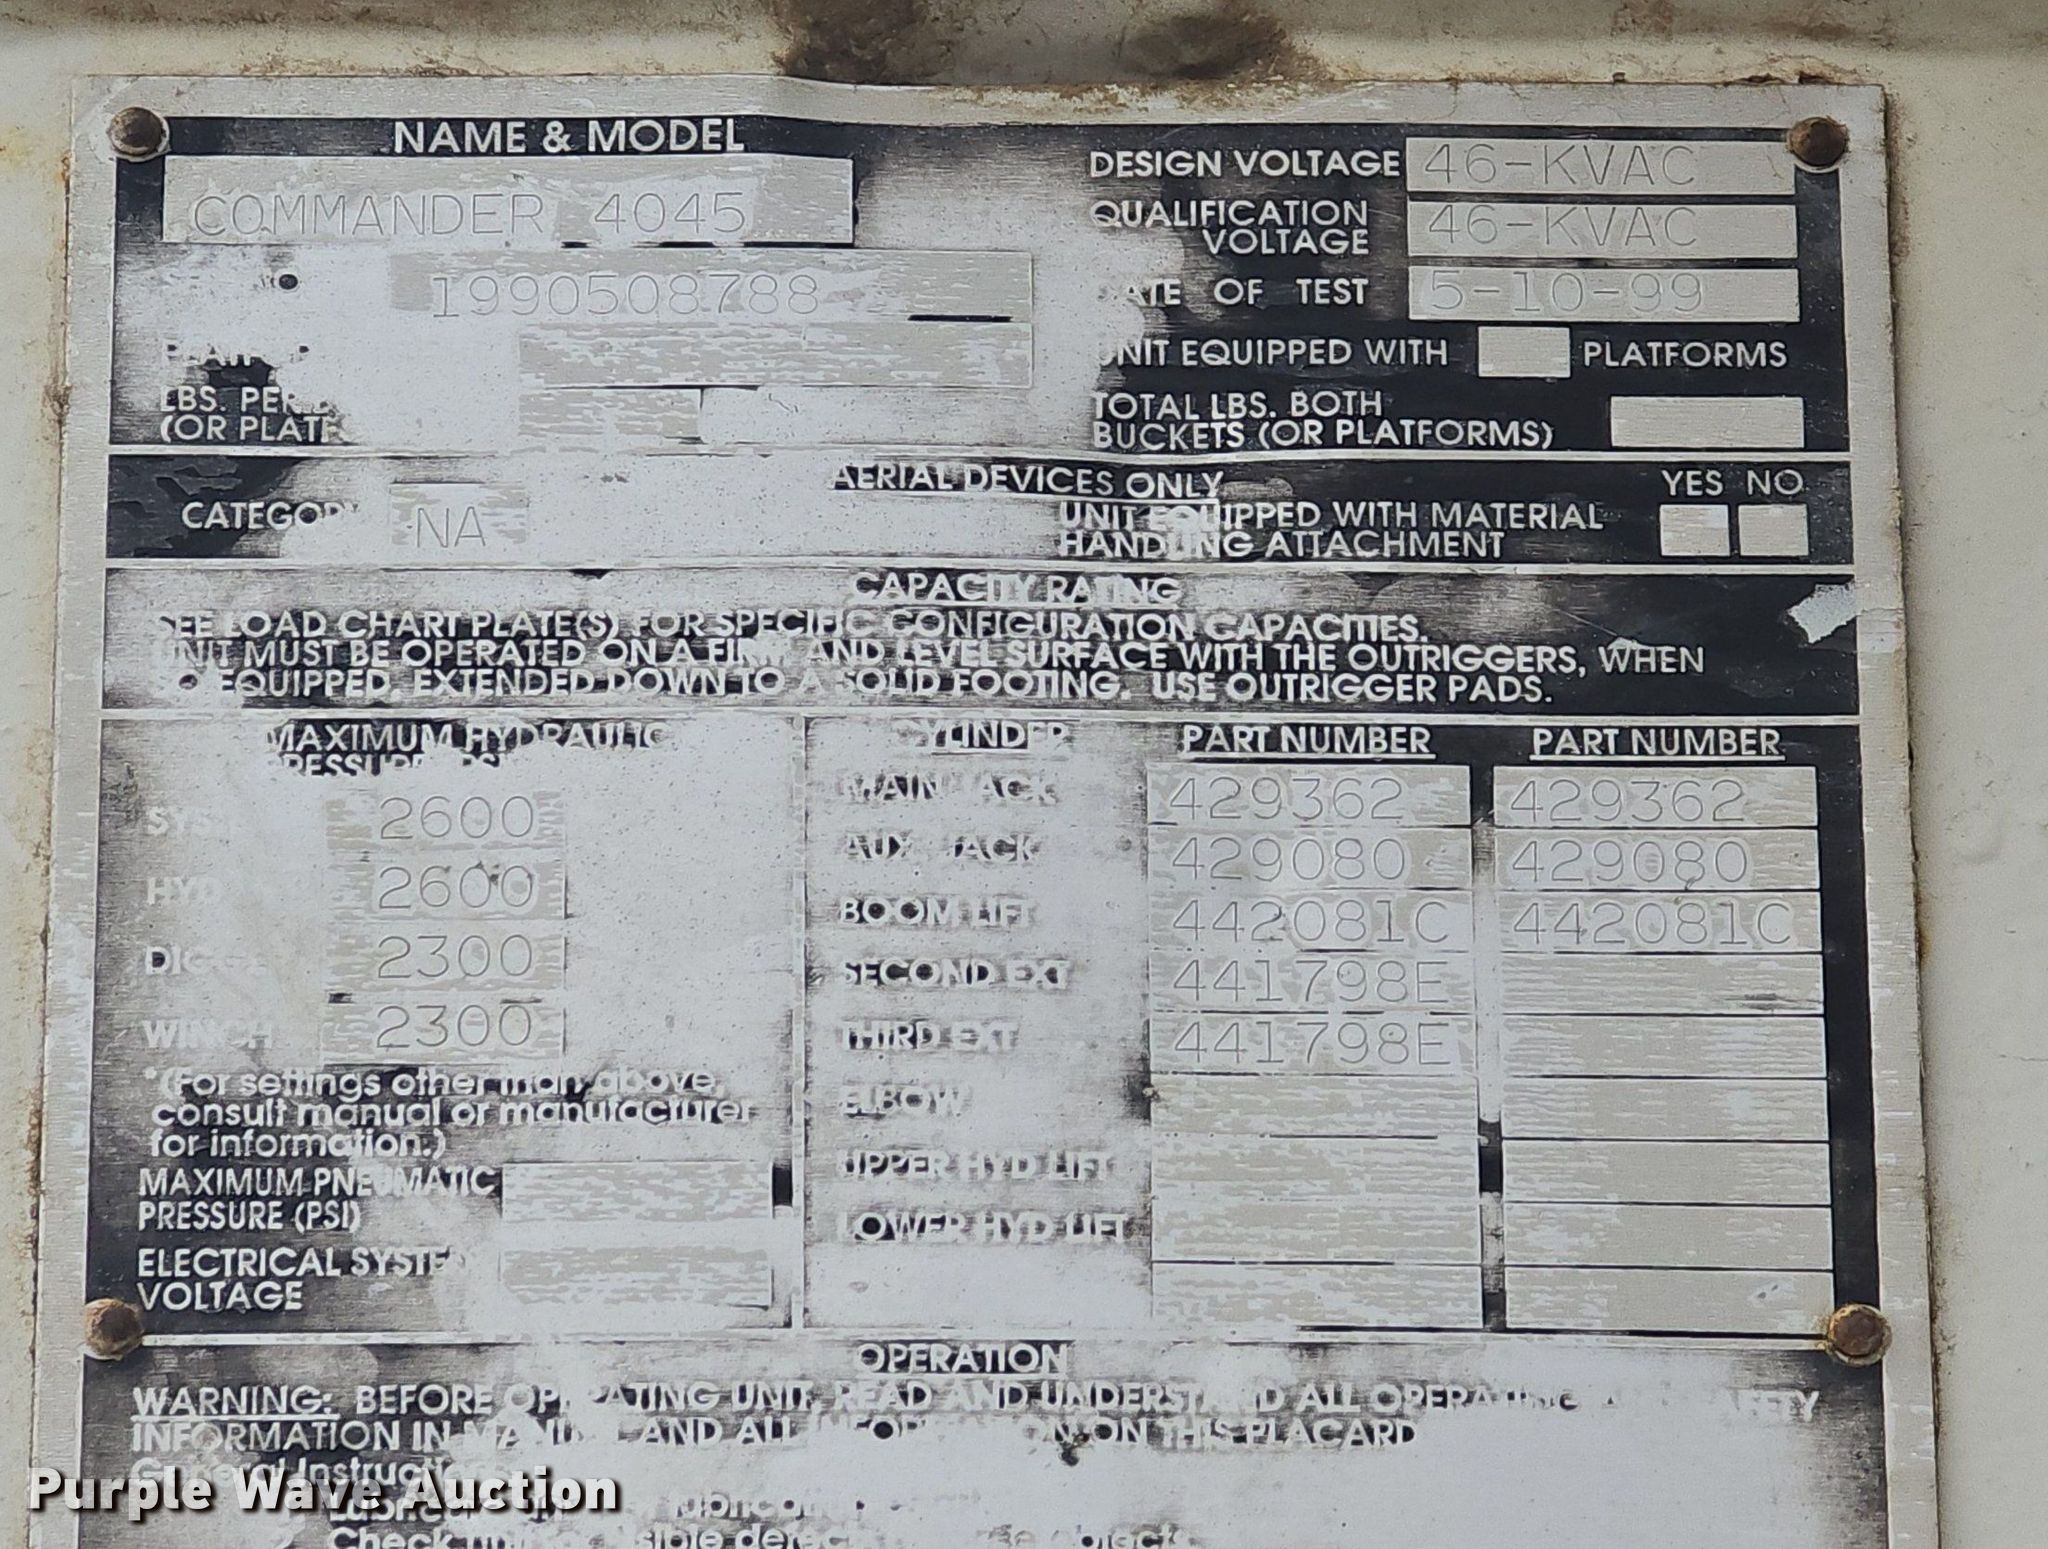 NAME & MODEL
COMMANDER 4045
1990508788
LBS. PER
(OR
DESIGN VOLTAGE 46-KVAC
QUALIFICATION VOLTAGE 46-KVAC
DATE OF TEST 5-10-99
UNIT EQUIPPED WITH PLATFORMS
TOTAL LBS. BOTH
BUCKETS (OR PLATFORMS)
CATEGORY NA
AERIAL DEVICES ONLY
YES NO
UNIT EQUIPPED WITH MATERIAL
HANDLING ATTACHMENT
CAPACITY RATING
SEE LOAD CHART PLATE(S) FOR SPECIFIC CONFIGURATION CAPACITIES.
UNIT MUST BE OPERATED ON A FIRM AND LEVEL SURFACE WITH THE OUTRIGGERS, WHEN
SO EQUIPPED, EXTENDED DOWN TO A SOLID FOOTING. USE OUTRIGGER PADS.
MAXIMUM HYDRAULIC
PRESSURE
2600
2600
2300
WINCH 2300
*(For settings other than above,
consult manual or manufacturer
for information.)
MAXIMUM PNEUMATIC
PRESSURE (PSI)
ELECTRICAL SYSTEM
VOLTAGE
CYLINDER PART NUMBER PART NUMBER
MAIN JACK 429362 429362
AUX. JACK 429080 429080
BOOM LIFT 442081C 442081C
SECOND EXT 441798E
THIRD EXT 441798E
ELBOW
UPPER HYD LIFT
LOWER HYD LIFT
OPERATION
WARNING: BEFORE OPERATING UNIT, READ AND UNDERSTAND ALL OPERATING AND SAFETY
INFORMATION IN MANUAL AND ALL INFORMATION ON THIS PLACARD
General Instructions
Check
Purple Wave Auction